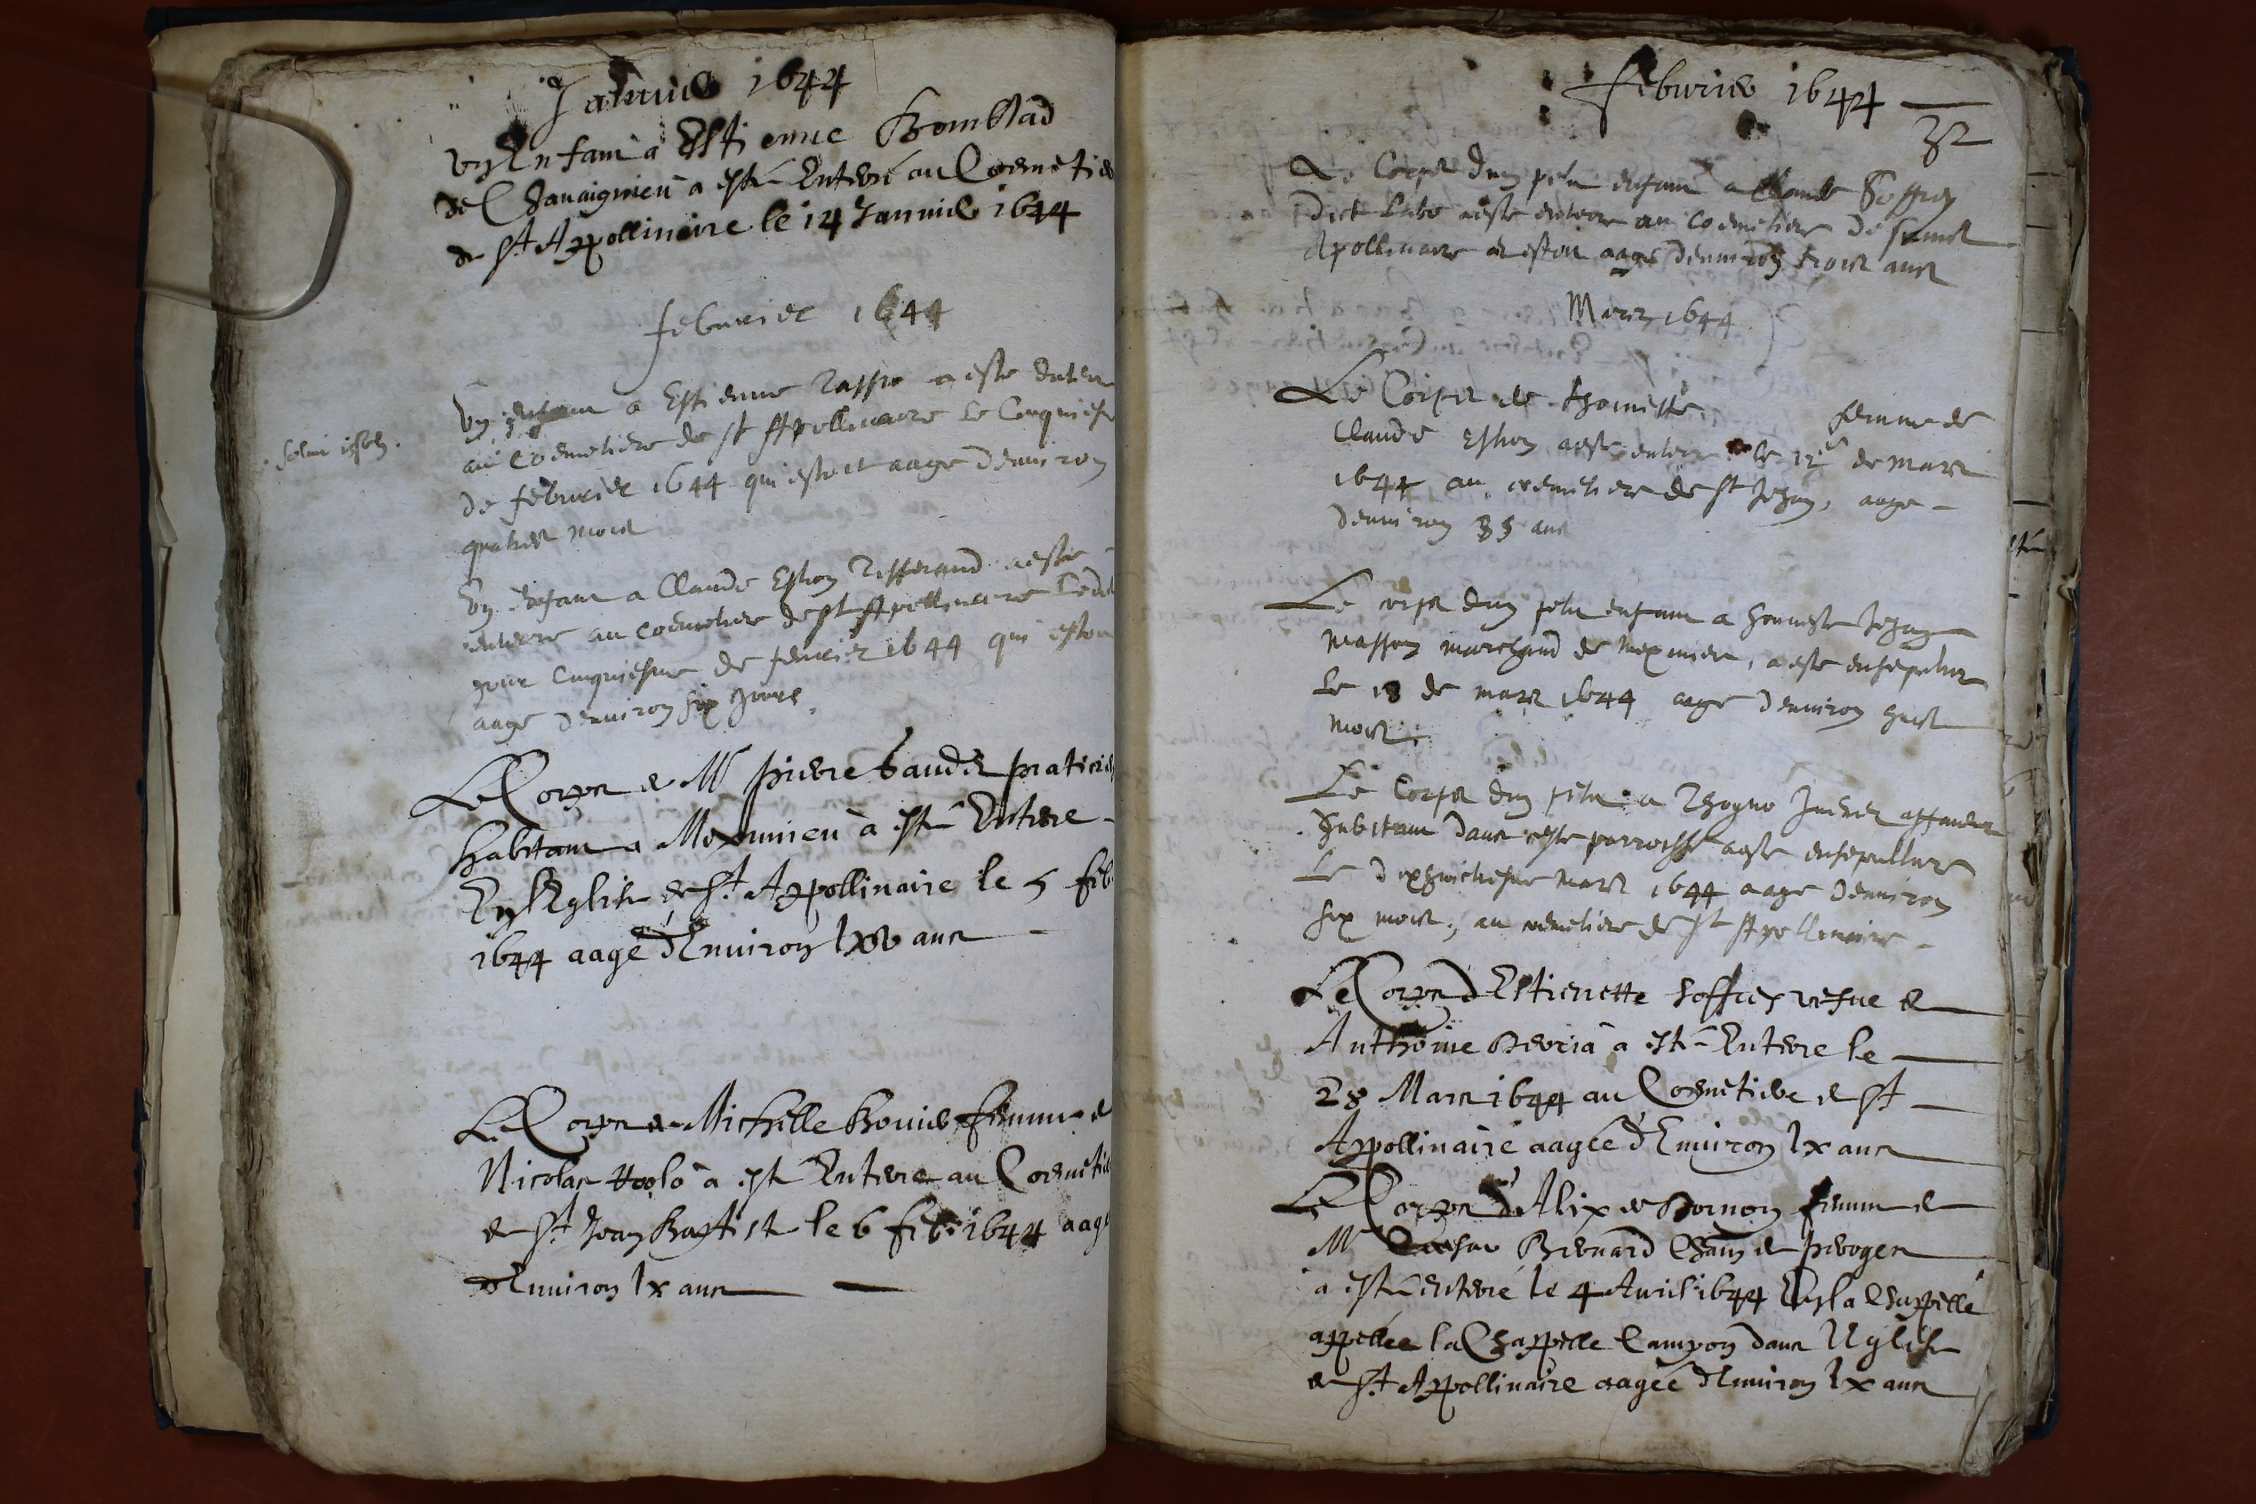 Januier 1644
Vng Enfant a Estienne
de Chauaignieu a esté Enterré au Coemetier
de St Appollinaire le 14 Januier 1644
feburier 1644
Vng enfant a Estienne a este enterre
au Coemetiere de St Appollinaire le Cinquiesme
de feburier 1644 qui estoit aage denuiron
quatres mois
Vng enfant a Claude Esthon a este
enterre au coemetiere de St Appollinaire
jour cinquiesme de feurier 1644 qui estoit
aage denuiron six jours
Le Corps de Mr pierre baudet praticien
habitant a Meximieu a esté Enterre
En lEglise de St Appollinaire le 5 feb
1644 aagé dEnuiron lxv ans
Le Corps de Michelle Bouuier femme de
Nicolas a esté Enterre au Coemetier
de St Jean Baptiste le 6 feb. 1644 aagé
dEnuiron lx ans
feburier 1644
32
Le Corps dung petit enfant a Claude Soffrey
dict a este enterre au coemetiere de sainct
Apollinaire et estoit aagé denuiron trois ans
Mars 1644
Le Corps de thoinette femme de
Claude Esthon a este enterre le 12e de mars
1644 au cemetiere de St Jehan, aage
denuiron 35 ans
Le corps dung petit enfant a honneste Jehan
Masson marchand de Meximieu, a este ensepulture
le 18 de mars 1644 aage denuiron huict
mois.
Le Corps dung petit a affaneur
habitant dans ceste parroisse a este ensepulture
le dixhuictiesme mars 1644 aage denuiron
six mois, au cemetiere de St Appollinaire
Le Corps dEstienette Soffrey vefue de
Anthoine a esté Enterre le
28 Mars 1644 au Coemetiere de St
Appollinaire aagée dEnuiron lx ans
Le Corps dAlix de Bornon femme de
Mr Bernard Chastn de peroges
a esté enterré le 4 Auril 1644 En la Chappelle
appellée la Chappelle Campon dans lEglise
de St Appollinaire aagée dEnuiron lx ans